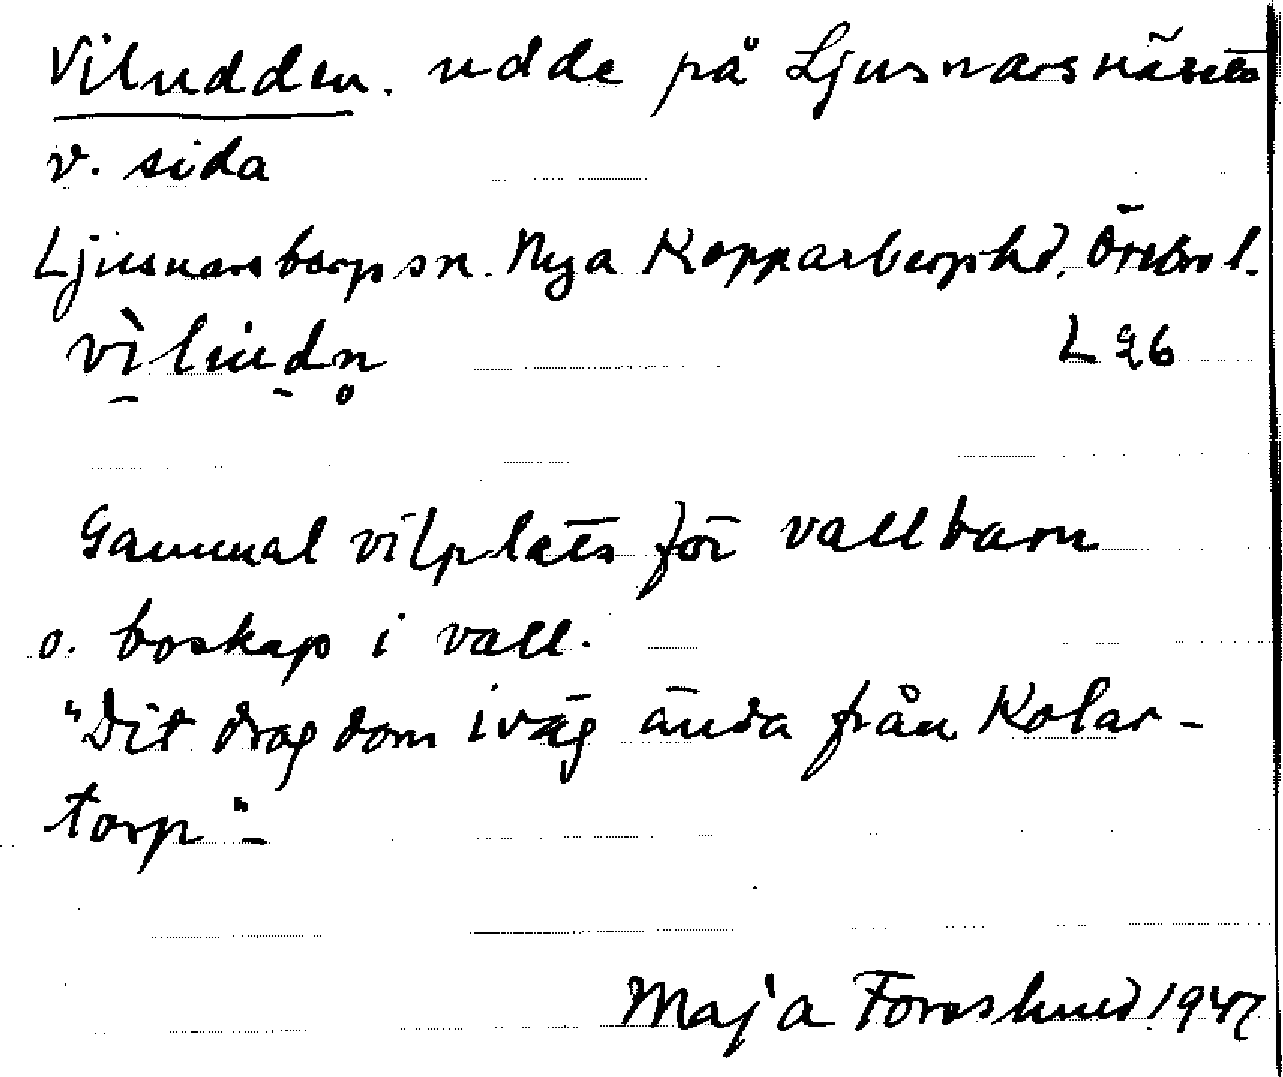 Viludden. udde på Ljusnarsnäsets
v. sida
Ljusnarsbergs sn. Nya Kopparbergs hd, Örebro l.
vìludn̥
L 26
Gammal vilplats för vallbarn
o. boskap i vall.
"Dit drog dom iväg ända från Kolar-
torp"-
Maja Forsslund 1947